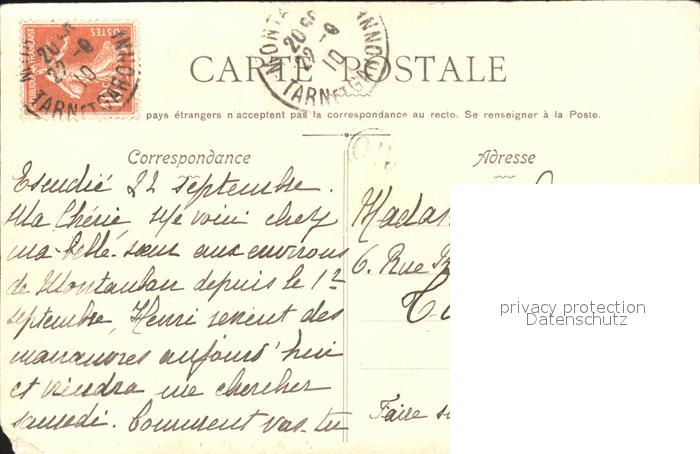 RÉPUBLIQUE FRANÇAISE
POSTES
20
22 - 9
10
TARN ET GARONNE
20
22 - 9
10
TARN ET G
CARTE POSTALE
pays étrangers n'acceptent pas la correspondance au recto. Se renseigner à la Poste.
Correspondance
Adresse
22 septembre.
Ma Chérie, Me voici chez
ma belle-sœur aux environs
de Montauban depuis le 1er
septembre, Henri revient des
manœuvres aujourd'hui
et viendra me chercher
samedi. Comment vas-tu
Madam
6. Rue
Faire
privacy protection
Datenschutz